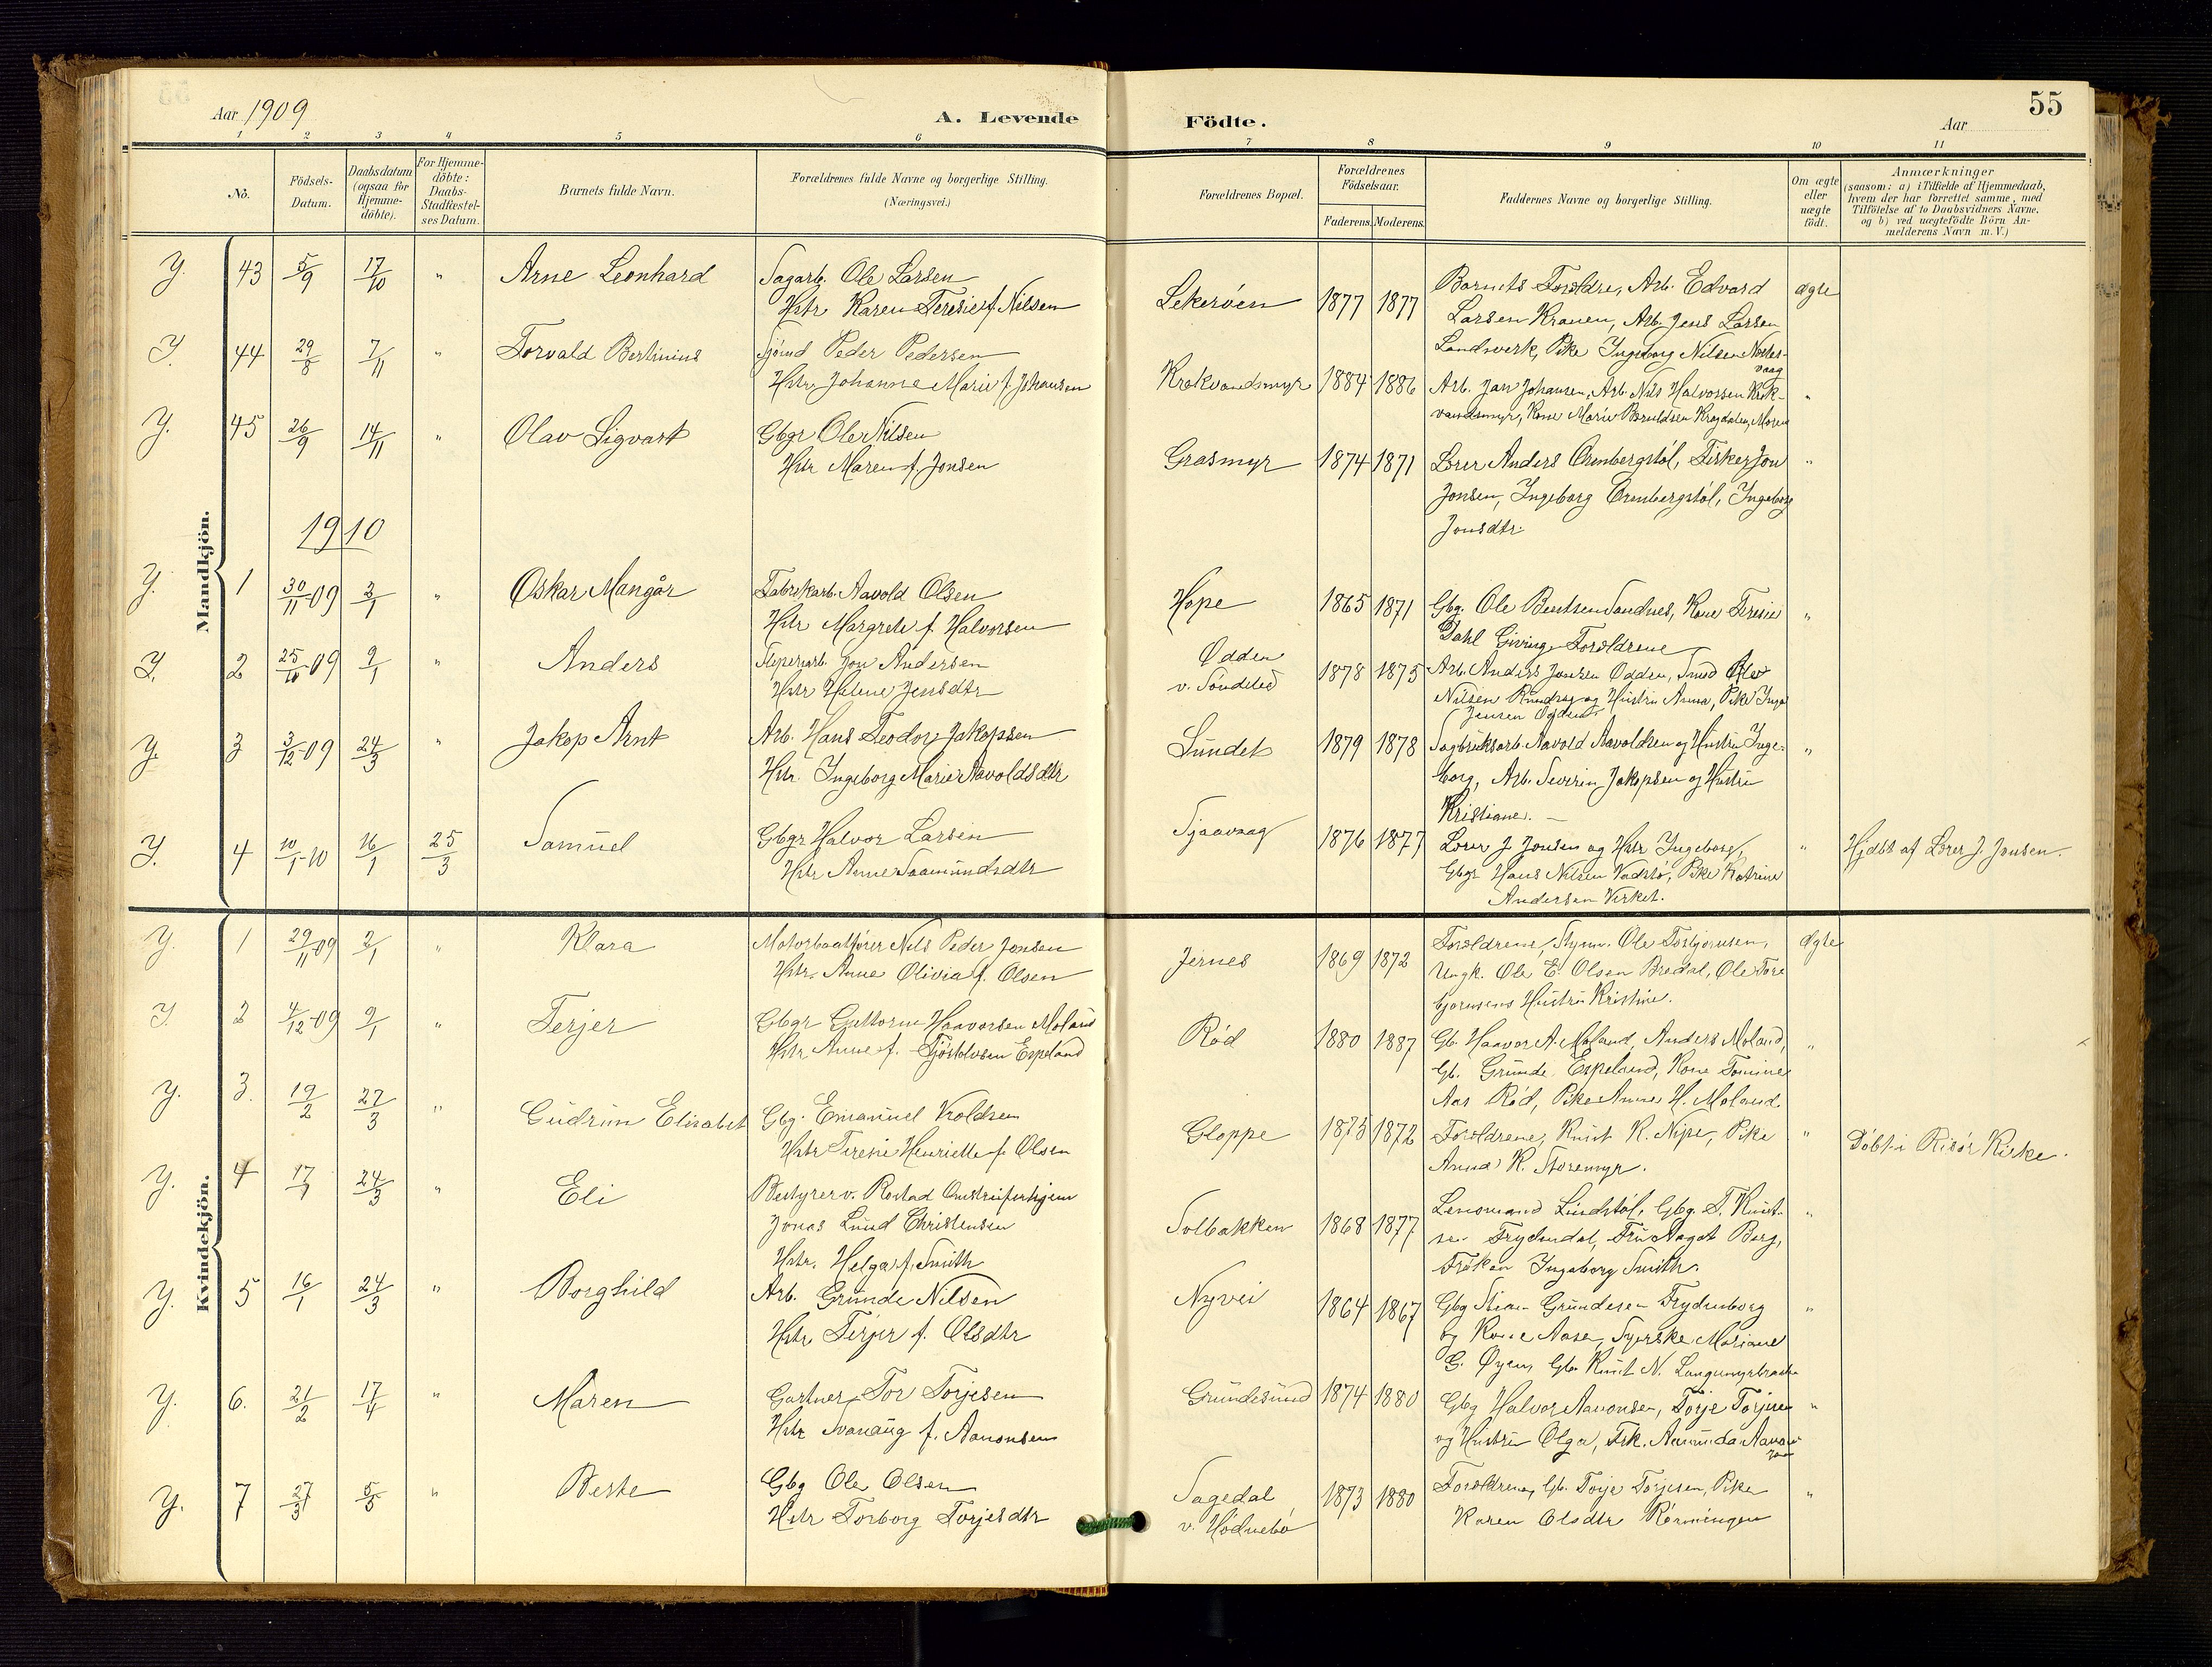 55
Aar 1909
A. Levende
Födte.
Aar
1 2 3 4 5 6 7 8 9 10 11
No.
Födsels-Datum.
Daabsdatum (ogsaa for Hjemme-döbte).
For Hjemme-döbte: Daabs-Stadfæstel-ses Datum.
Barnets fulde Navn.
Forældrenes fulde Navne og borgerlige Stilling.
(Næringsvei.)
Forældrenes Bopæl.
Forældrenes Födselsaar.
Faderens. Moderens.
Faddernes Navne og borgerlige Stilling.
Om ægte eller uægte födt.
Anmærkninger
(saasom: a) i Tilfælde af Hjemmedaab,
hvem der har forrettet samme, med
Tilföielse af to Daabsvidners Navne,
og b) ved uægtefödte Börn An-
melderens Navn m. V.)
Mandkjön.
Y. 43 5/9 17/10 " Arne Leonhard Sagarb. Ole Larsen
Hstr Karen Teresie f. Nilsen
Lekeröen 1877 1877 Barnets Foreldre, Arb. Edvard ægte
Larsen Kranen, Arb. Jens Larsen
Landsverk, Pike Ingeborg Nilsen Nordes-
vaag
Y. 44 29/8 7/11 " Torvald Bertinius Sjömd Peder Pedersen
Hstr. Johanne Marie f. Johansen
Krokvandsmyr 1884 1886 Arb. Jan Johansen, Arb. Nils Halvorsen Krok- "
vandsmyr, Kone Marie Berntdsen Krogdalen, Moren
Y. 45 26/9 14/11 " Olav Sigvart Gbgr Ole Nilsen
Hstr Maren f. Jonsen
Grasmyr 1874 1871 Lærer Anders Ormbergstöl, Fisker Jon "
Jonsen, Ingeborg Ormbergstöl, Ingeborg
Jonsdtr.
1910
Y. 1 30/11-09 2/1 " Oskar Mangår Fabrikarb. Aavold Olsen
Hstr Margrete f. Halvorsen
Hope 1865 1871 Gbg. Ole Bentsen Sandnes, Kone Teresie "
Dahl Giving, Forældrene
Y. 2 25/10-09 9/1 " Anders Sliperiarb. Jon Andersen
Hstr Helene Jensdtr
Odden
v. Söndeled 1878 1875 Arb. Anders Jonsen Odden, Smed Olav
Nilsen og Hustru Anna, Pike Inga
Jensen Odden
Y. 3 3/12-09 24/3 " Jakop Arnt Arb. Hans Teodor Jakopsen
Hstr. Ingeborg Marie Aavoldsdtr
Sundet 1879 1878 Sagbruksarb. Aavold Aavoldsen og Hustru Inge- "
borg, Arb. Severin Jakopsen og Hustru
Kristiane.
Y. 4 10/1-10 16/1 25/3 Samuel Gbgr Halvor Larsen
Hstr Anne Saamundsdtr
Sjaavaag 1876 1877 Lærer J. Jonsen og Hstr Ingeborg, " Hjdbt af Lærer J. Jonsen.
Gbgr Hans Nilsen Vadstö, Pike Katrine
Andersen Virket.
Kvindekjön.
Y. 1 29/11-09 2/1 " Klara Motorbaatförer Nils Peder Jonsen
Hstr. Anne Olivia f. Olsen
Jernes 1869 1872 Forældrene, Styrm. Ole Torbjornsen, Ægte
Ungk. Ole E. Olsen Bredal, Ole Tor-
bjornsens Hustru Kristine.
Y. 2 4/12-09 9/1 " Terjer Gbgr Guttorm Haavorsen Moland
Hstr Anne f. Tjöstolvsen Espeland
Röd 1880 1887 Gb. Haavor A. Moland, Anders Moland, "
Gb. Grunde Espeland, Kone Tomine
Aas Röd, Pike Anne H. Moland
Y. 3. 19/2 27/3 " Gudrun Elisabet Gbg. Emanuel Kroldsen
Hstr Teresie Henriette f. Olsen
Gloppe 1873 1872 Forældrene, Knut K. Nipe, Pike " Döbt i Risör Kirke.
Anna K. Storemyr.
Y. 4 17/1 24/3 " Eli Bestyrer v. Rostad Omstreiferhjem
Jonas Lund Christensen
Hstr. Helga f. Smith
Solbakken 1868 1877 Lensmand Lindstöl, Gbg. T. Knut- "
sen Frydendal, Fru Aagot Berg,
Fröken Ingeborg Smith.
Y. 5 16/1 24/3 " Borghild Arb. Grunde Nilsen
Hstr Terjer f. Olsdtr
Nyvei 1864 1867 Gbg Stian Grundesen Frydenborg "
og Kone Aase, Syerske Mariane
G. Öyen, Gb. Knut N. Langemyrbraaten
Y. 6. 21/2 17/4 " Maren Gartner Tor Torjesen
Hstr Svanaug f. Aanonsen
Grundesund 1874 1880 Gbg Halvor Aanonsen, Torje Torjesen "
og Hustru Olga, Frk. Aanunda Aanon-
sen
Y. 7 27/3 5/5 " Berte Gbg Ole Olsen
Hstr Torborg Torjesdtr
Sagedal
v. Hödnebö 1873 1880 Forældrene, Gb. Torje Torjesen, Pike "
Karen Olsdtr Rörmingen